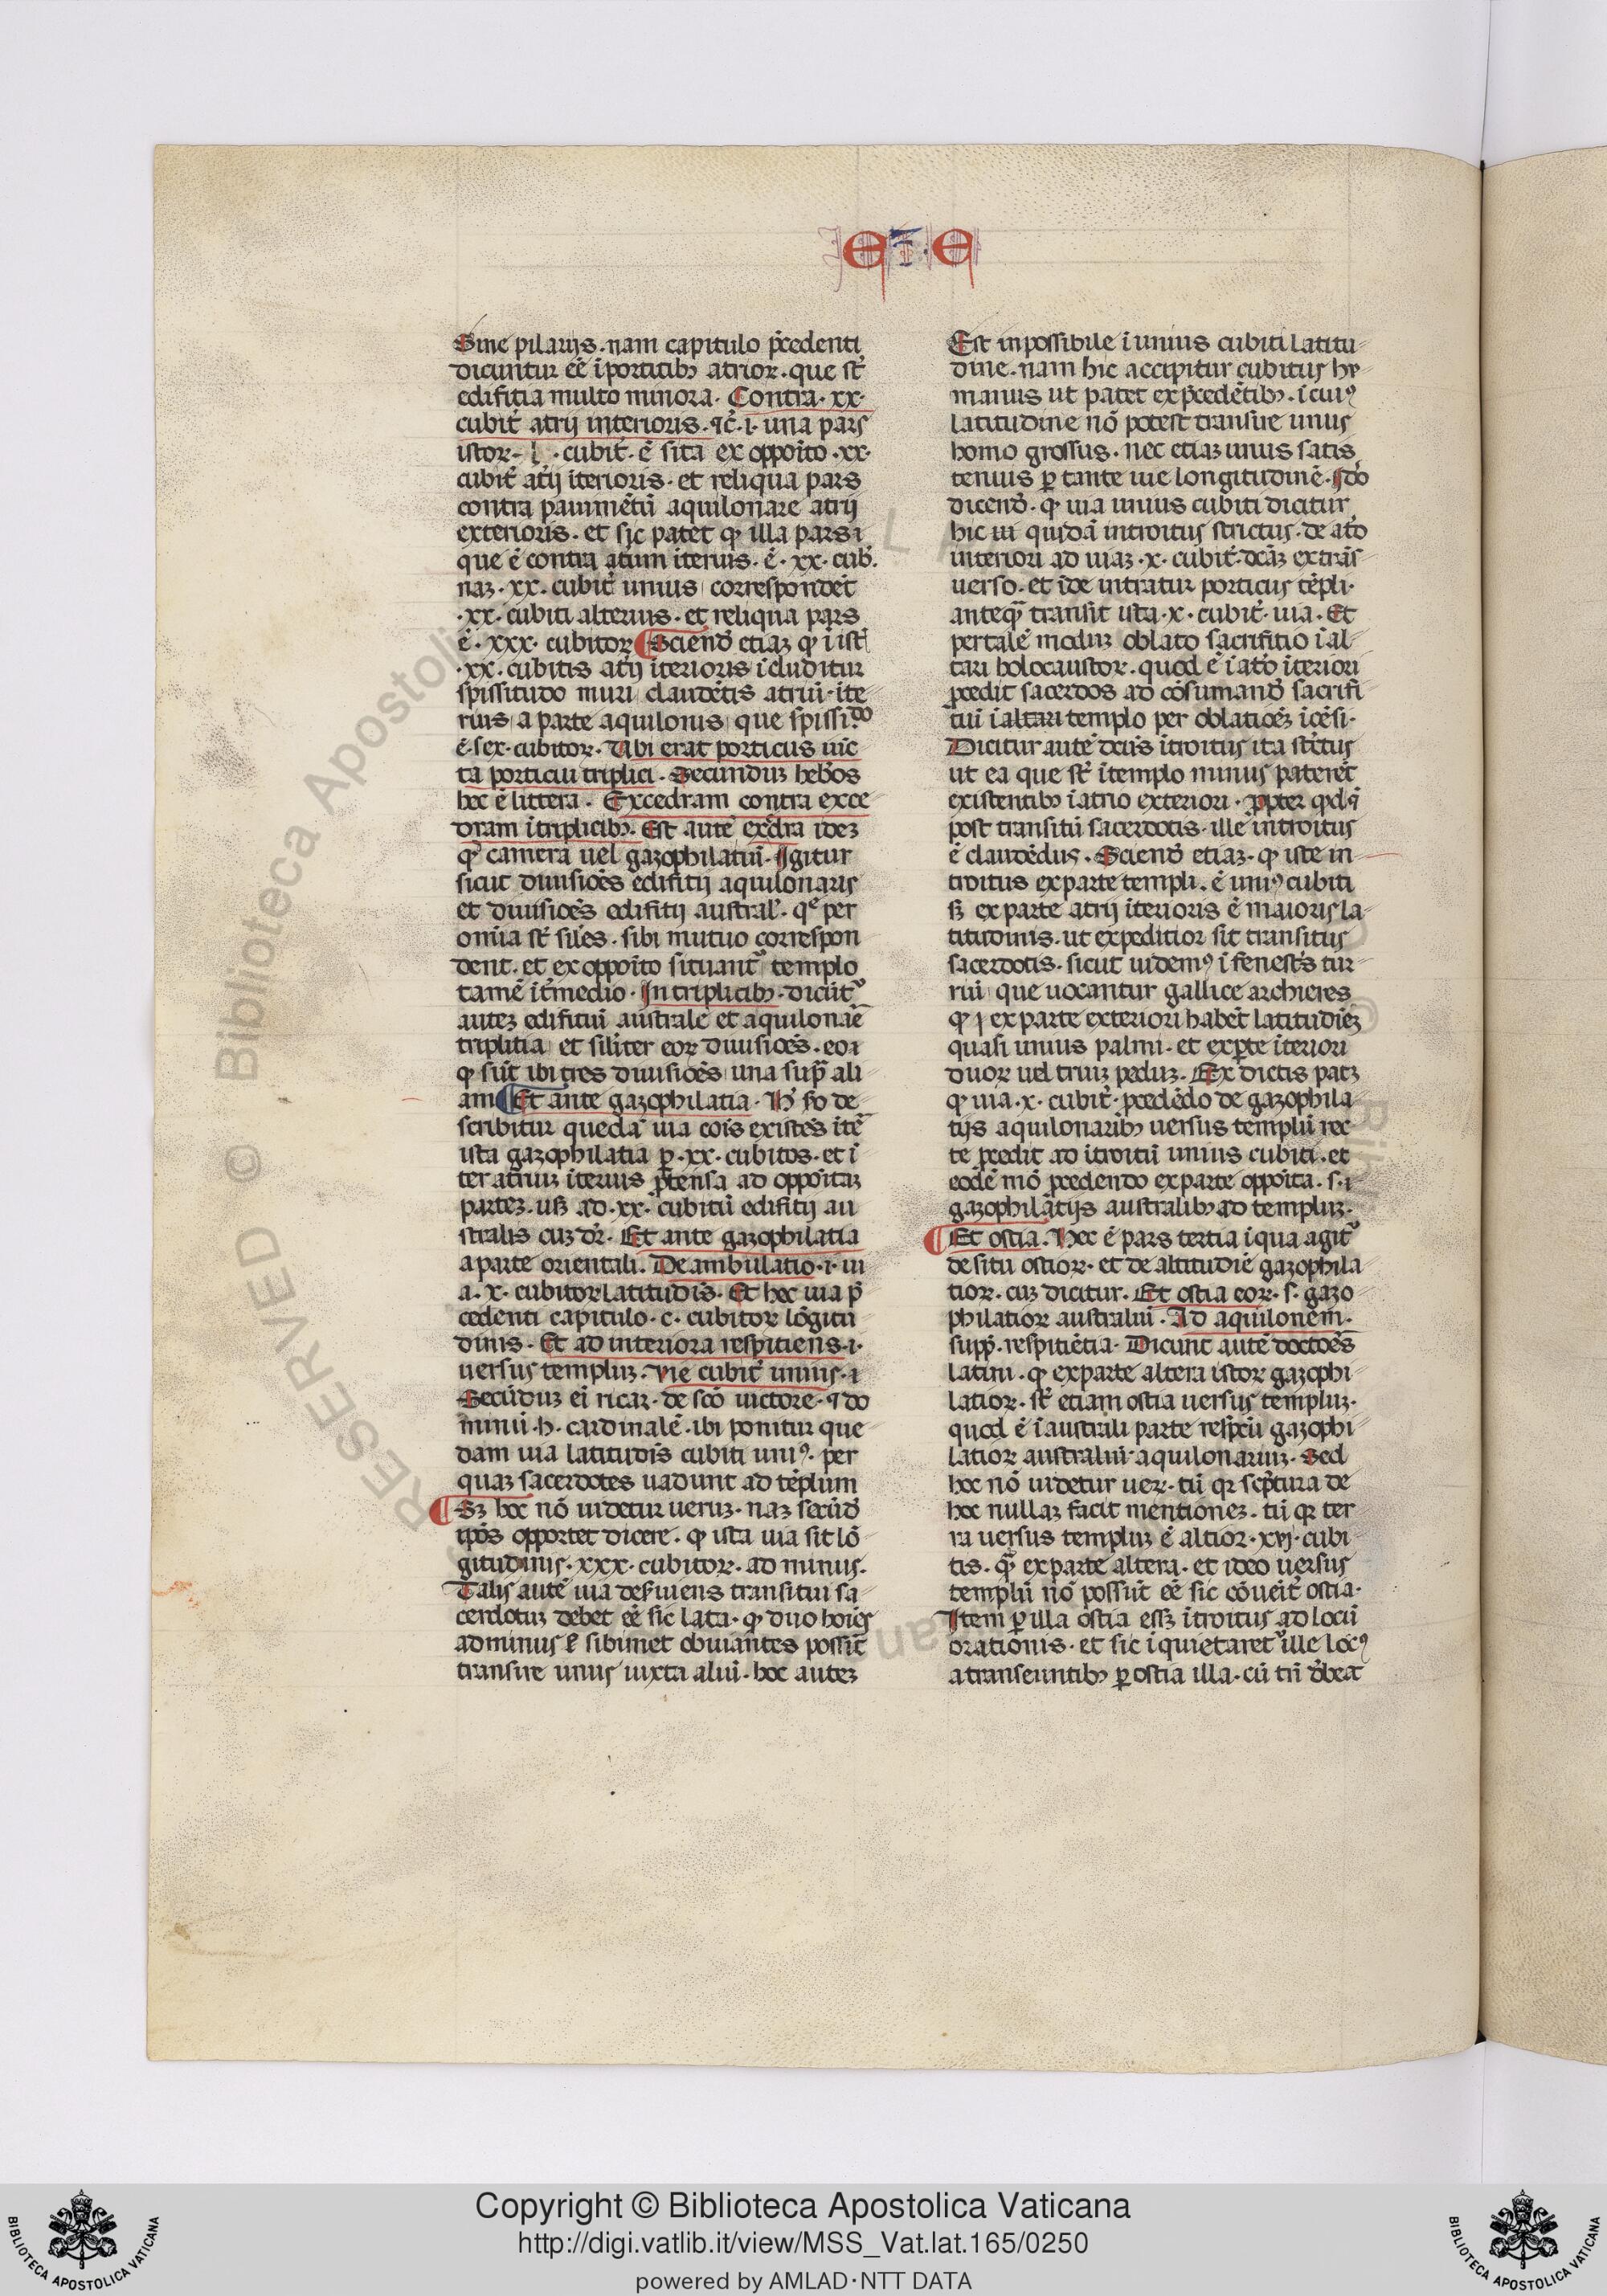 E · E
Sine pilariis. nam capitulo p̄cedenti
dicuntur eē ī porticibꝫ atrioꝝ. que st̄
edifitia multo minora. Contra .xx.
cubit̄ atrij interioris. ⁊c̄. i. una pars
istoꝝ l. cubit. ē sita ex oppoīto .xx.
cubit̄ at̄ij īterioris. et reliqua pars
contra pauimētū aquilonare atrij
exterioris. et sic patet ꝙ illa pars
que ē contra at̄ium īterius. ē .xx. cub̄.
naꝫ .xx. cubit̄ unius correspondēt
.xx. cubiti alterius. et reliqua pars
ē .xxx. cubitoꝝ ¶ Sciend̄ etiaꝫ ꝙ ī ist̄
.xx. cubitis at̄ij īterioris īcluditur
spissitudo muri claudētis atriū īte
rius a parte aquilonis que spissido
ē. sex. cubitoꝝ. Ubi erat porticus iūc
ta porticui triplici. Secunduꝫ heb̄os
hec ē littera. Excedram contra exce
dram ī triplicibꝫ. Est autē exēdra ideꝫ
ꝙ camera uel gazophilatiū. Igitur
sicut diuisiōes edifitij aquilonaris
et diuisiōes edifitij austral̄. qͤ per
omīa st̄ sīles. sibi mutuo correspon
dent. et ex oppoīto situant᷑ templo
tamē īt̄medio. In triplicibꝫ. dicūt᷑
auteꝫ edifitiū australe et aquilonāe
triplitia et sīliter eoꝝ diuisiōes. eo
ꝙ sūt ibi tres diuisiōes una sup̄ ali
am ¶ Et ante gazophilatia. H̄ 
scribitur quedā uia cōis existēs ītē
ista gazophilatia ꝑ .xx. cubitos. et ī
ter atriuꝫ īterius p̄tensa ad oppoītaꝫ
parteꝫ. usꝫ ad .xx. cubitū edifitij au
stralis cuꝫ dr̄. Et ante gazophilatia
a parte orientali. Deambulatio. i. ui
a .x. cubitoꝝ latitudīs. Et hec uia p̄
cedenti capitulo .c. cubitoꝝ lōgitu
dinis. Et ad interiora respitiens. i.
uersus templuꝫ. Vie cubit̄ unius.
Secūduꝫ ricar. de sc̄o uictore. ⁊ do
minū .h. cardinalē. ibi ponitur que
dam uia latitudīs cubiti uniꝰ. per
quaꝫ sacerdotes uadunt ad tēplum
¶ Sꝫ hoc nō uidetur ueruꝫ. naꝫ secūd̄
ip̄os opportet dicere. ꝙ ista uia sit lō
gitudinis .xxx. cubitoꝝ. ad minus.
Talis autē uia deseruiens transitui sa
cerdotuꝫ debet eē sic lata. ꝙ duo hoīes
ad minus sibimet obuiantes possīt
transire unus iuxta aliū. hoc auteꝫ
Est inpossibile ī unius cubiti latitu
dine. nam hic accipitur cubitus hu
manus ut patet ex p̄cedētibꝫ. ī cuiꝰ
latitudine nō potest transire unus
homo grossus. nec etiaꝫ unus satis
tenuis ꝑ tante uie longitudinē. Ido
dicend̄. ꝙ uia unius cubiti dicitur
hic quidā introitus strictus. de at̄o
interiori ad uiaꝫ .x. cubit̄. dc̄aꝫ ex trās
uerso. et īde intratur porticus tēpli.
anteq̄ transit ista .x. cubit̄. uia. Et
per tale moduꝫ oblato sacrifitio ī al
tari holocaustoꝝ. quod ē ī at̄o īteriori
ꝓcedit sacerdos ad cōsumand̄ sacrifi
tiū ī altari templo per oblatiōeꝫ īcēsi.
Dicitur autē deus ītroitus ita strc̄tus
ut ea que st̄ ī templo minus paterēt
existentibꝫ ī atrio exteriori. ꝓpter qd̄
post transitū sacerdotis. ille introitus
ē claudēdus. Sciend̄ etiaꝫ. ꝙ iste in
troitus ex parte templi. ē uniꝰ cubiti
sꝫ ex parte atrij īterioris ē maioris la
titudinis. ut expeditior sit transitus
sacerdotis. sicut uidemꝰ ī fenest̄s tur
riū que uocantur gallice archieres
ꝙ ex parte exteriori habēt latitudīeꝫ
quasi unius palmi. et ex ꝑte īteriori
duoꝝ uel triuꝫ peduꝫ. Ex dictis patꝫ
ꝙ uia .x. cubit̄. ꝓcedēdo de gazophila
tijs aquilonaribꝫ uersus templū rec
te ꝓcedit ad ītroitū unius cubiti. et
eodē mō ꝓcedendo ex parte oppoīta. s.
gazophilatijs australibꝫ ad templuꝫ.
¶ Et ostia. Hec ē pars tertia ī qua agit᷑
de situ ostioꝝ. et de altitudīe gazophila
tioꝝ. cuꝫ dicitur. Et ostia eoꝝ. s. gazo
philatioꝝ australiū. Ad aquilonem.
supp̄. respitiētia. Dicunt autē doctōes
latini. ꝙ ex parte altera istoꝝ gazophi
latioꝝ. st̄ etiam ostia uersus templuꝫ.
quod ē ī australi parte respc̄u gazophi
latioꝝ australiū aquilonariuꝫ. Sed
hoc nō uidetur ueꝝ. tū qꝛ sc̄ptura de
hoc nullaꝫ facit mentioneꝫ. tū qꝛ ter
ra uersus templuꝫ ē altior .xvj. cubi
tis. q̄ ex parte altera. et ideo uersus
templū nō possūt eē sic cōueīt̄ ostia.
Item ꝑ illa ostia essꝫ ītroitus ad locū
orationis. et sic īquietaret᷑ ille locꝰ
a transeuntibꝫ ꝑ ostia illa. cū tn̄ d̄beat
Copyright © Biblioteca Apostolica Vaticana
http://digi.vatlib.it/view/MSS_Vat.lat.165/0250
powered by AMLAD·NTT DATA
BIBLIOTECA APOSTOLICA VATICANA
BIBLIOTECA APOSTOLICA VATICANA